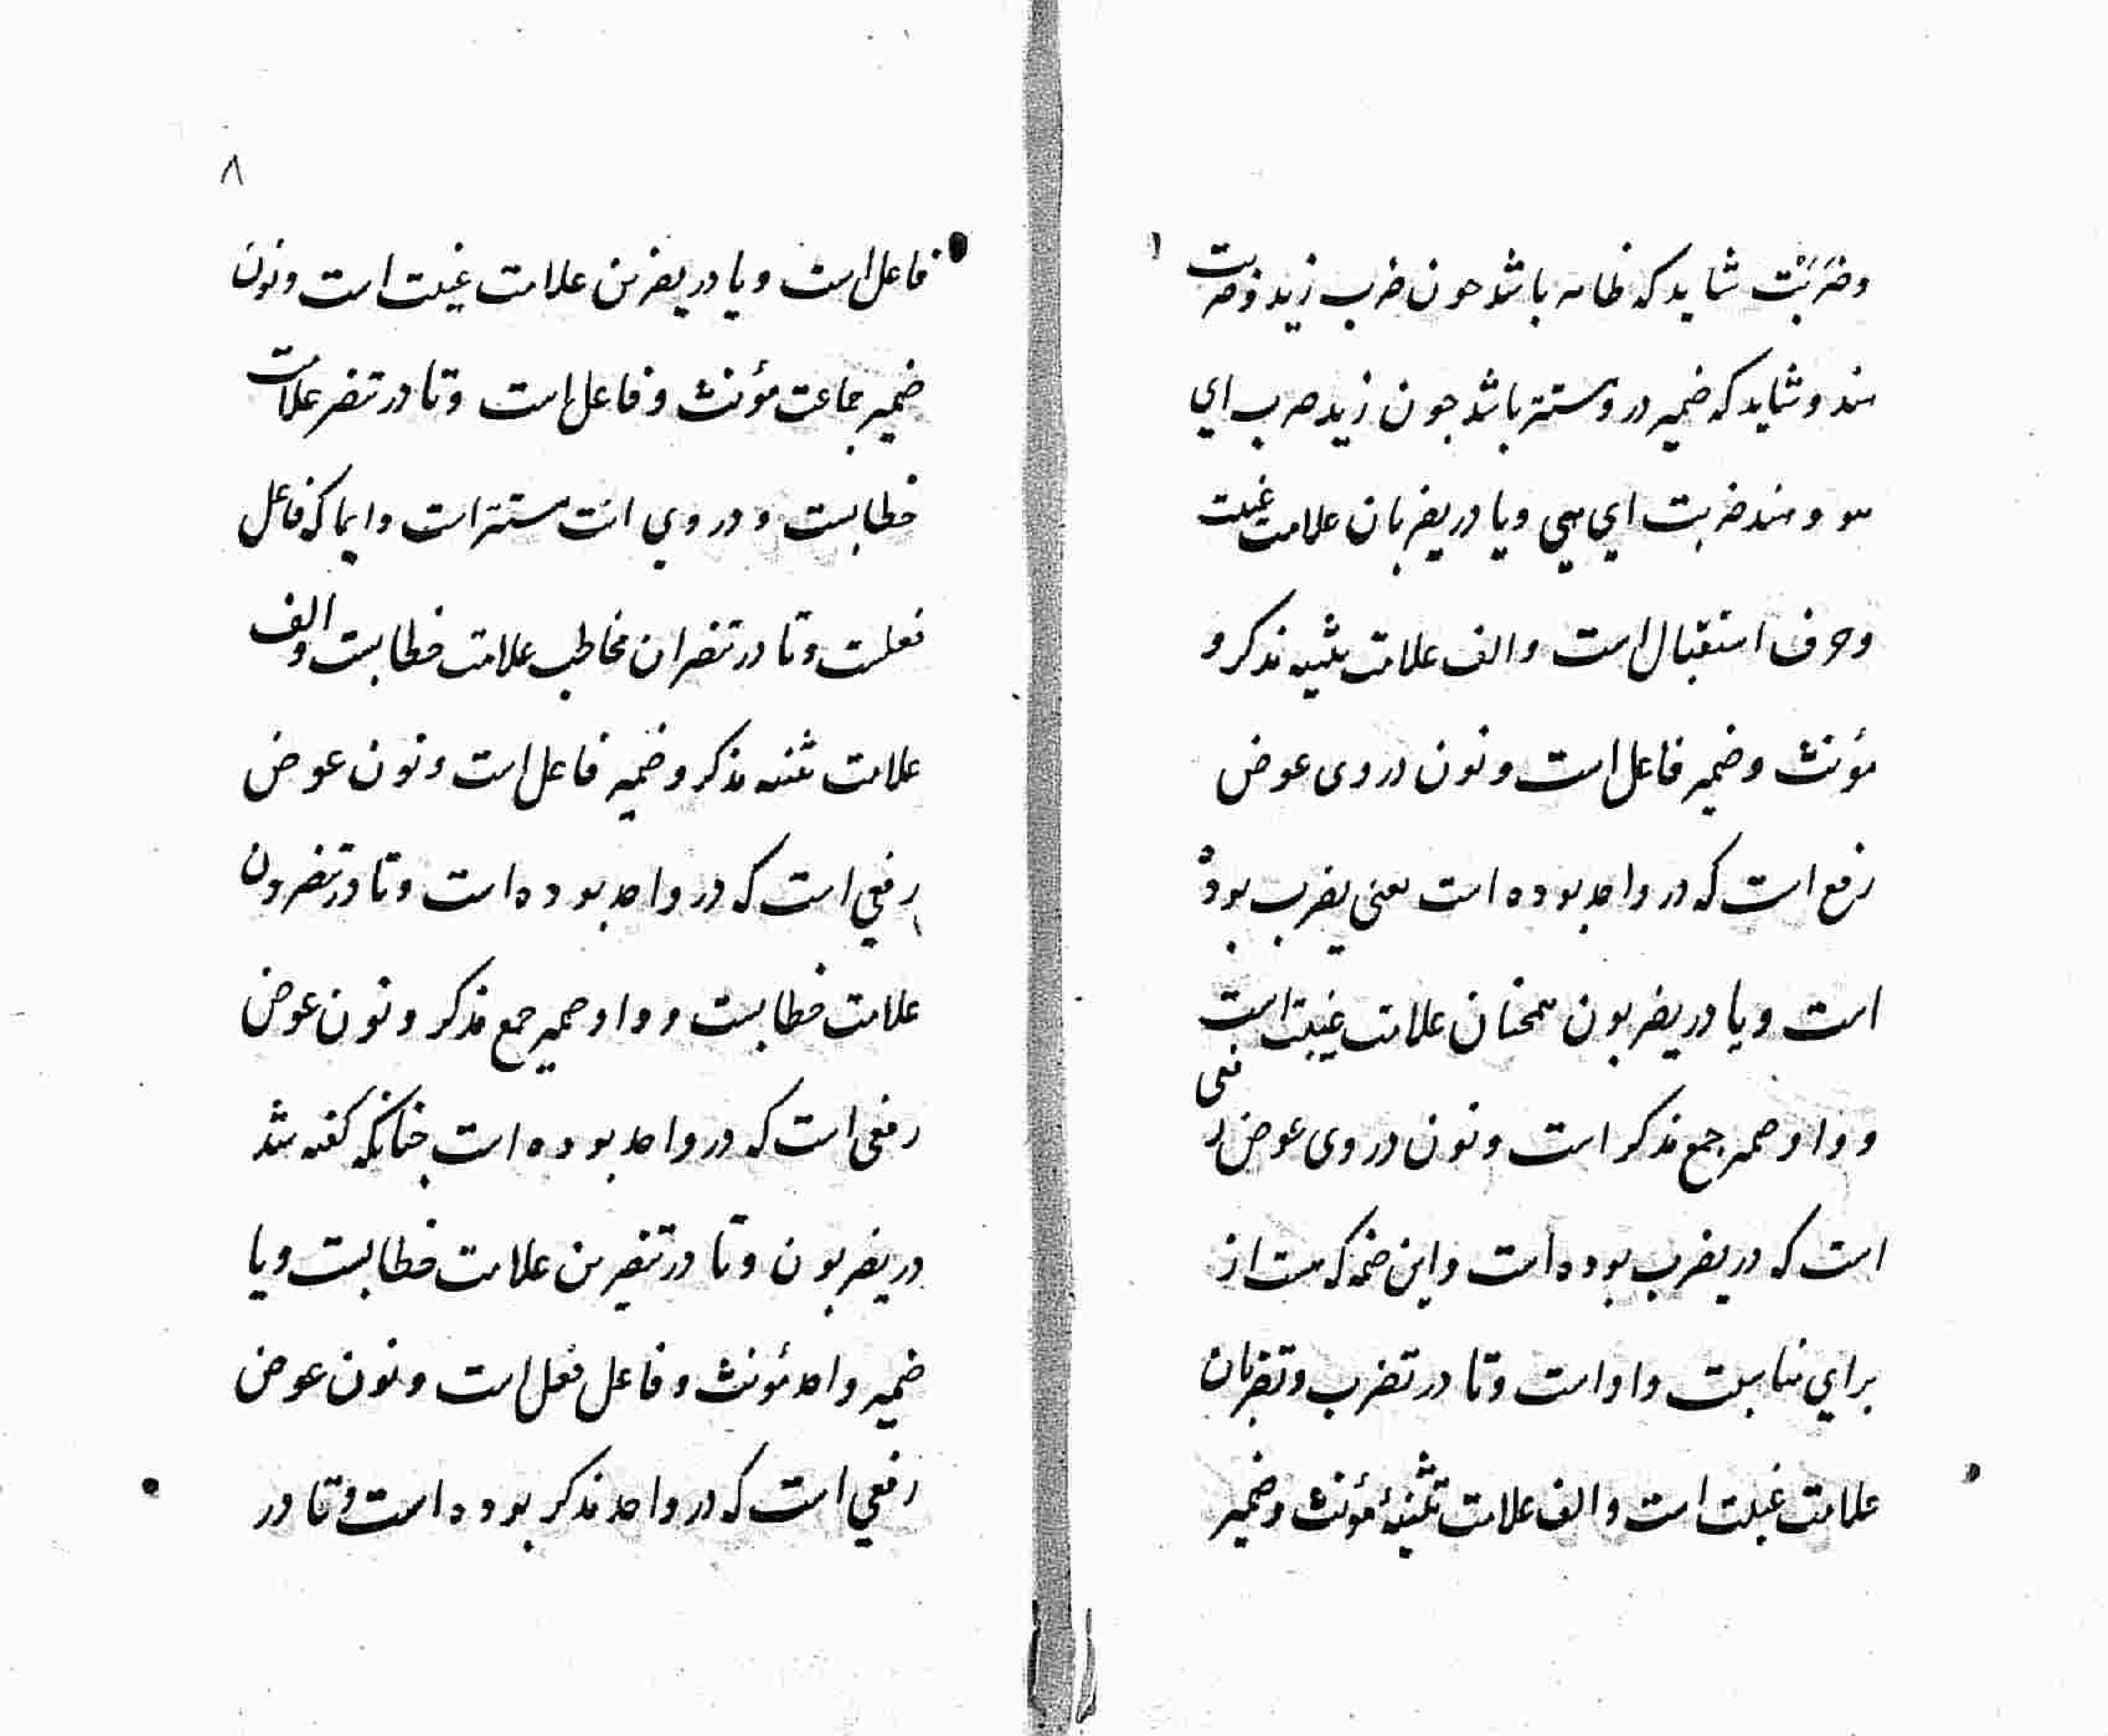 وضَرَبَتْ شاید که ظاهر باشد چون ضرب زید وضربت
هند و شاید که ضمیر در و مستتر باشد چون زید ضرب ای
هو و هند ضربت ای هی و یا در یضربان علامت غیبت
و حرف استقبال است و الف علامت تثنیه مذکر و
مؤنث و ضمیر فاعل است و نون در وی عوض
رفع است که در واحد بوده است یعنی یضرب بوده
است و یا در یضربون همچنان علامت غیبت است
و واو ضمیر جمع مذکر است و نون در وی عوض رفعی
است که در یضرب بوده است و این ضمه که هست از
برای مناسبت واو است و تا در تضرب و تضربان
علامت غیبت است و الف علامت تثنیهٔ مؤنث و ضمیر
۸
فاعل است و یا در یضربن علامت غیبت است و نون
ضمیر جماعت مؤنث و فاعل است و تا در تنصر علامت
خطابست و در وی انت مستتر است دایما که فاعل
فعلست و تا در تنصران مخاطب علامت خطابست و الف
علامت تثنیه مذکر و ضمیر فاعل است و نون عوض
رفعی است که در واحد بوده است و تا در تنصرون
علامت خطابست و واو ضمیر جمع مذکر و نون عوض
رفعی است که در واحد بوده است چنانکه گفته شد
در یضربون و تا در تنصرین علامت خطابست و یا
ضمیر واحد مؤنث و فاعل فعل است و نون عوض
رفعی است که در واحد مذکر بوده است و تا در